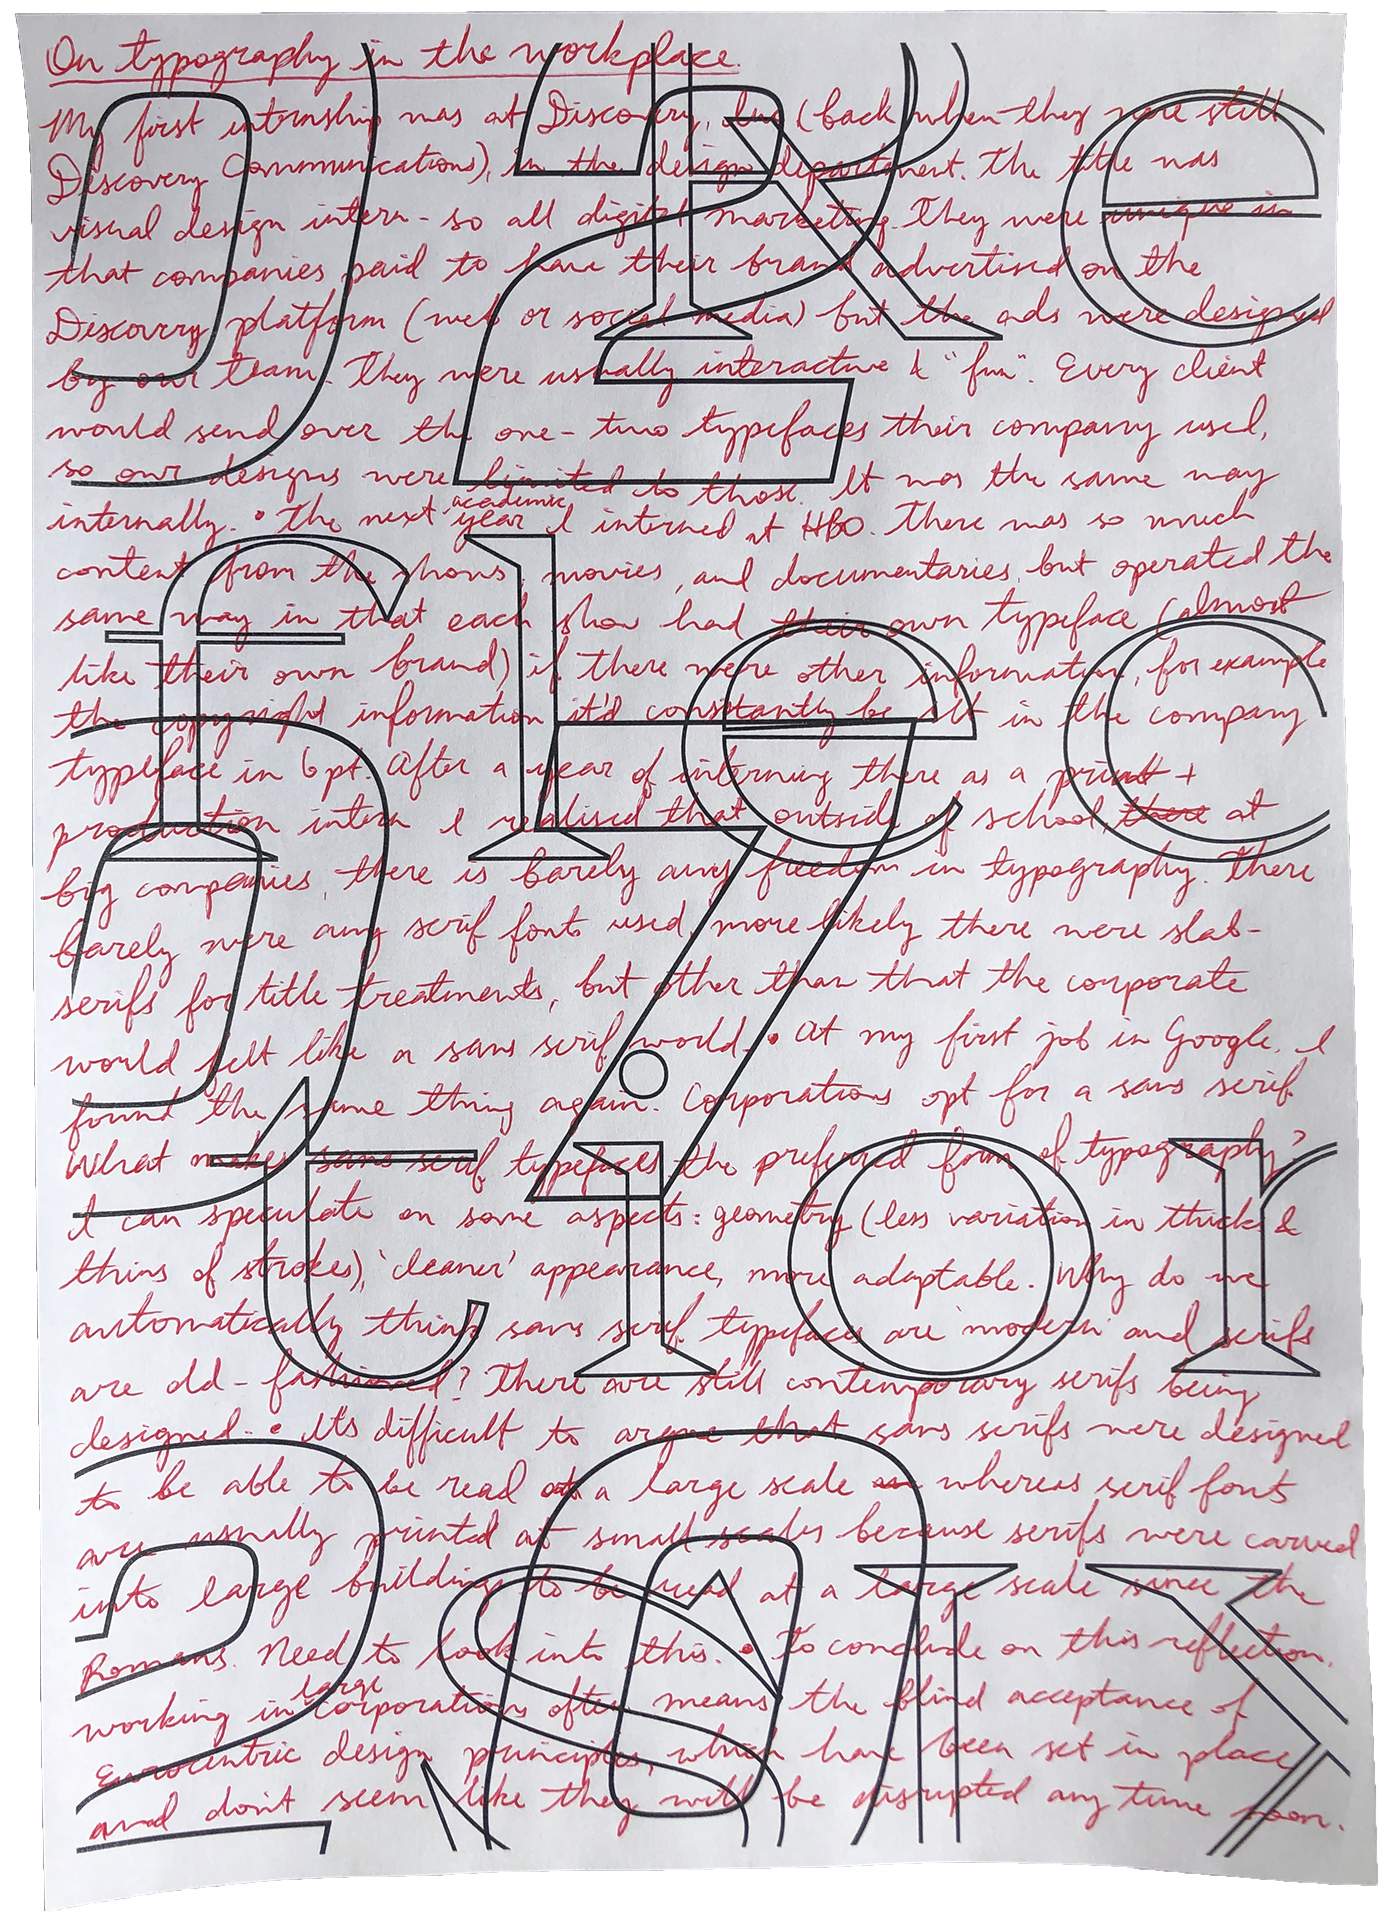 On typography in the workplace.
My first internship was at Discovery, Inc (back when they were still
Discovery Communications), in the design department. The title was
visual design intern - so all digital marketing. They were unique in
that companies paid to have their brand advertised on the
Discovery platform (web or social media) but the ads were designed
by our team. They were usually interactive & "fun". Every client
would send over the one-two typefaces their company used,
so our designs were limited to those. It was the same way
internally. • The next academic year I interned at HBO. There was so much
content from the shows, movies, and documentaries, but operated the
same way in that each show had their own typeface (almost
like their own brand) if there were other information, for example
the copyright information it'd constantly be set in the company
typeface in 6pt. After a year of interning there as a print +
production intern I realised that outside of school, there at
big companies, there is barely any freedom in typography. There
barely were any serif fonts used, more likely there were slab-
serifs for title treatments, but other than that the corporate
world felt like a sans serif world. • At my first job in Google, I
found the same thing again. Corporations opt for a sans serif.
What makes sans serif typefaces the preferred form of typography?
I can speculate on some aspects: geometry (less variation in thicks &
thins of strokes), 'cleaner' appearance, more adaptable. Why do we
automatically think sans serif typefaces are 'modern' and serifs
are old-fashioned? There are still contemporary serifs being
designed. • It's difficult to argue that sans serifs were designed
to be able to be read at a large scale whereas serif fonts
are usually printed at small scales because serifs were carved
into large buildings to be read at a large scale since the
Romans. Need to look into this. • To conclude on this reflection,
working in large corporations often means the blind acceptance of
Eurocentric design principles, which have been set in place
and don't seem like they will be disrupted any time soon.
Re
flec
tior
say